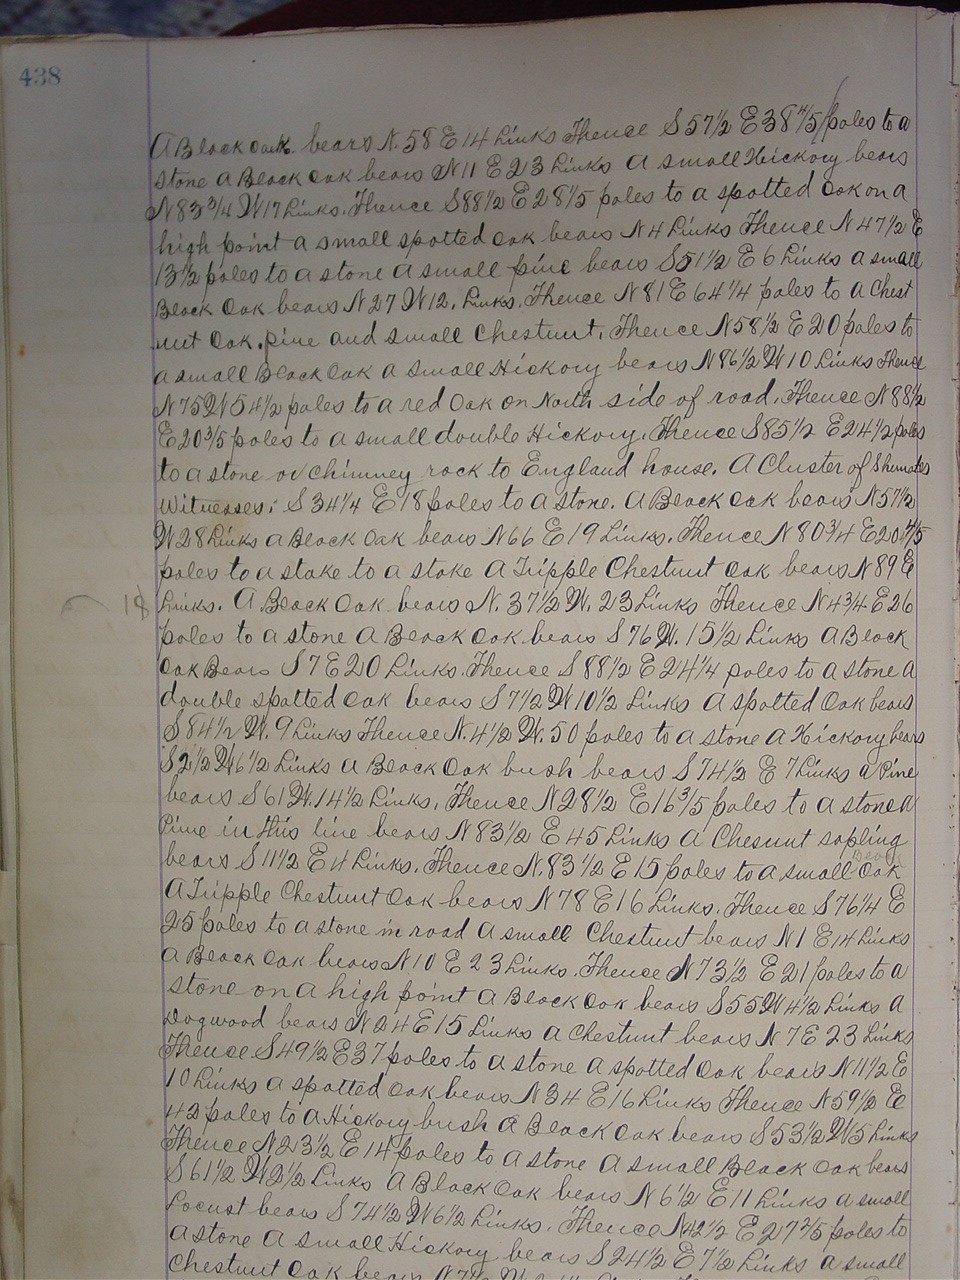 438
A Black Oak bears N. 58 E 14 Links Thence S 57 1/2 E 38 4/5 poles to a
stone a Black Oak bears N 11 E 23 Links a small Hickory bears
N 83 3/4 W 17 Links. Thence S 88 1/2 E 28 1/5 poles to a spotted Oak on a
high point a small spotted Oak bears N 4 Links Thence N 47 1/2 E
13 1/2 poles to a stone a small pine bears S 51 1/2 E 6 Links a small
Black Oak bears N 27 W 12. Links. Thence N 81 E 64 1/4 poles to a Chest
nut Oak. pine and small Chestnut. Thence N 58 1/2 E 20 poles to
a small Black Oak a small Hickory bears N 86 1/2 W 10 Links Thence
N 75 W 54 1/2 poles to a red Oak on North side of road. Thence N 88 1/2
E 20 3/5 poles to a small double Hickory. Thence S 85 1/2 E 24 1/2 poles
to a stone or chimney rock to England house. A Cluster of Shumates
Witnesses; S 34 1/4 E 18 poles to a stone. A Black Oak bears N 57 1/2
W 28 Links a Black Oak bears N 66 E 19 Links. Thence N 80 3/4 E 20 4/5
poles to a stake to a stake A Tripple Chestnut Oak bears N 89 E
18 Links. A Black Oak bears N. 37 1/2 W. 23 Links Thence N 4 3/4 E 26
poles to a stone A Black Oak bears S 76 W. 15 1/2 Links A Black
Oak Bears S 7 E 20 Links. Thence S 88 1/2 E 24 1/4 poles to a stone a
double spotted Oak bears S 7 1/2 W 10 1/2 Links a spotted Oak bears
S 84 1/2 W. 9 Links Thence N. 4 1/2 W. 50 poles to a stone a Hickory bears
S 2 1/2 W 6 1/2 Links a Black Oak bush bears S 74 1/2 E 7 Links a Pine
bears S 61 W. 14 1/2 Links. Thence N 28 1/2 E 16 3/5 poles to a stone a
Pine in this line bears N 83 1/2 E 45 Links a Chesnut sapling
bears S 11 1/2 E 4 Links. Thence N. 83 1/2 E 15 poles to a small Oak
A Tripple Chestnut Oak bears N 78 E 16 Links. Thence S 76 1/4 E
25 poles to a stone in road a small Chestnut bears N 1 E 14 Links
a Black Oak bears N 10 E 23 Links. Thence N 73 1/2 E 21 poles to a
stone on a high point A Black Oak bears S 55 W 4 1/2 Links a
Dogwood bears N 24 E 15 Links a Chestnut bears N 7 E 23 Links
Thence S 49 1/2 E 37 poles to a stone a spotted Oak bears N 11 1/2 E
10 Links a spotted Oak bears N 34 E 16 Links Thence N 59 1/2 E
42 poles to a Hickory bush A Black Oak bears S 53 1/2 W 5 Links
Thence N 23 1/2 E 14 poles to a stone a small Black Oak bears
S 61 1/2 W 2 1/2 Links A Black Oak bears N 6 1/2 E 11 Links a small
Locust bears S 74 1/2 W 6 1/2 Links. Thence N 42 1/2 E 27 2/5 poles to
a stone a small Hickory bears S 24 1/2 E 7 1/2 Links a small
Chestnut Oak bears